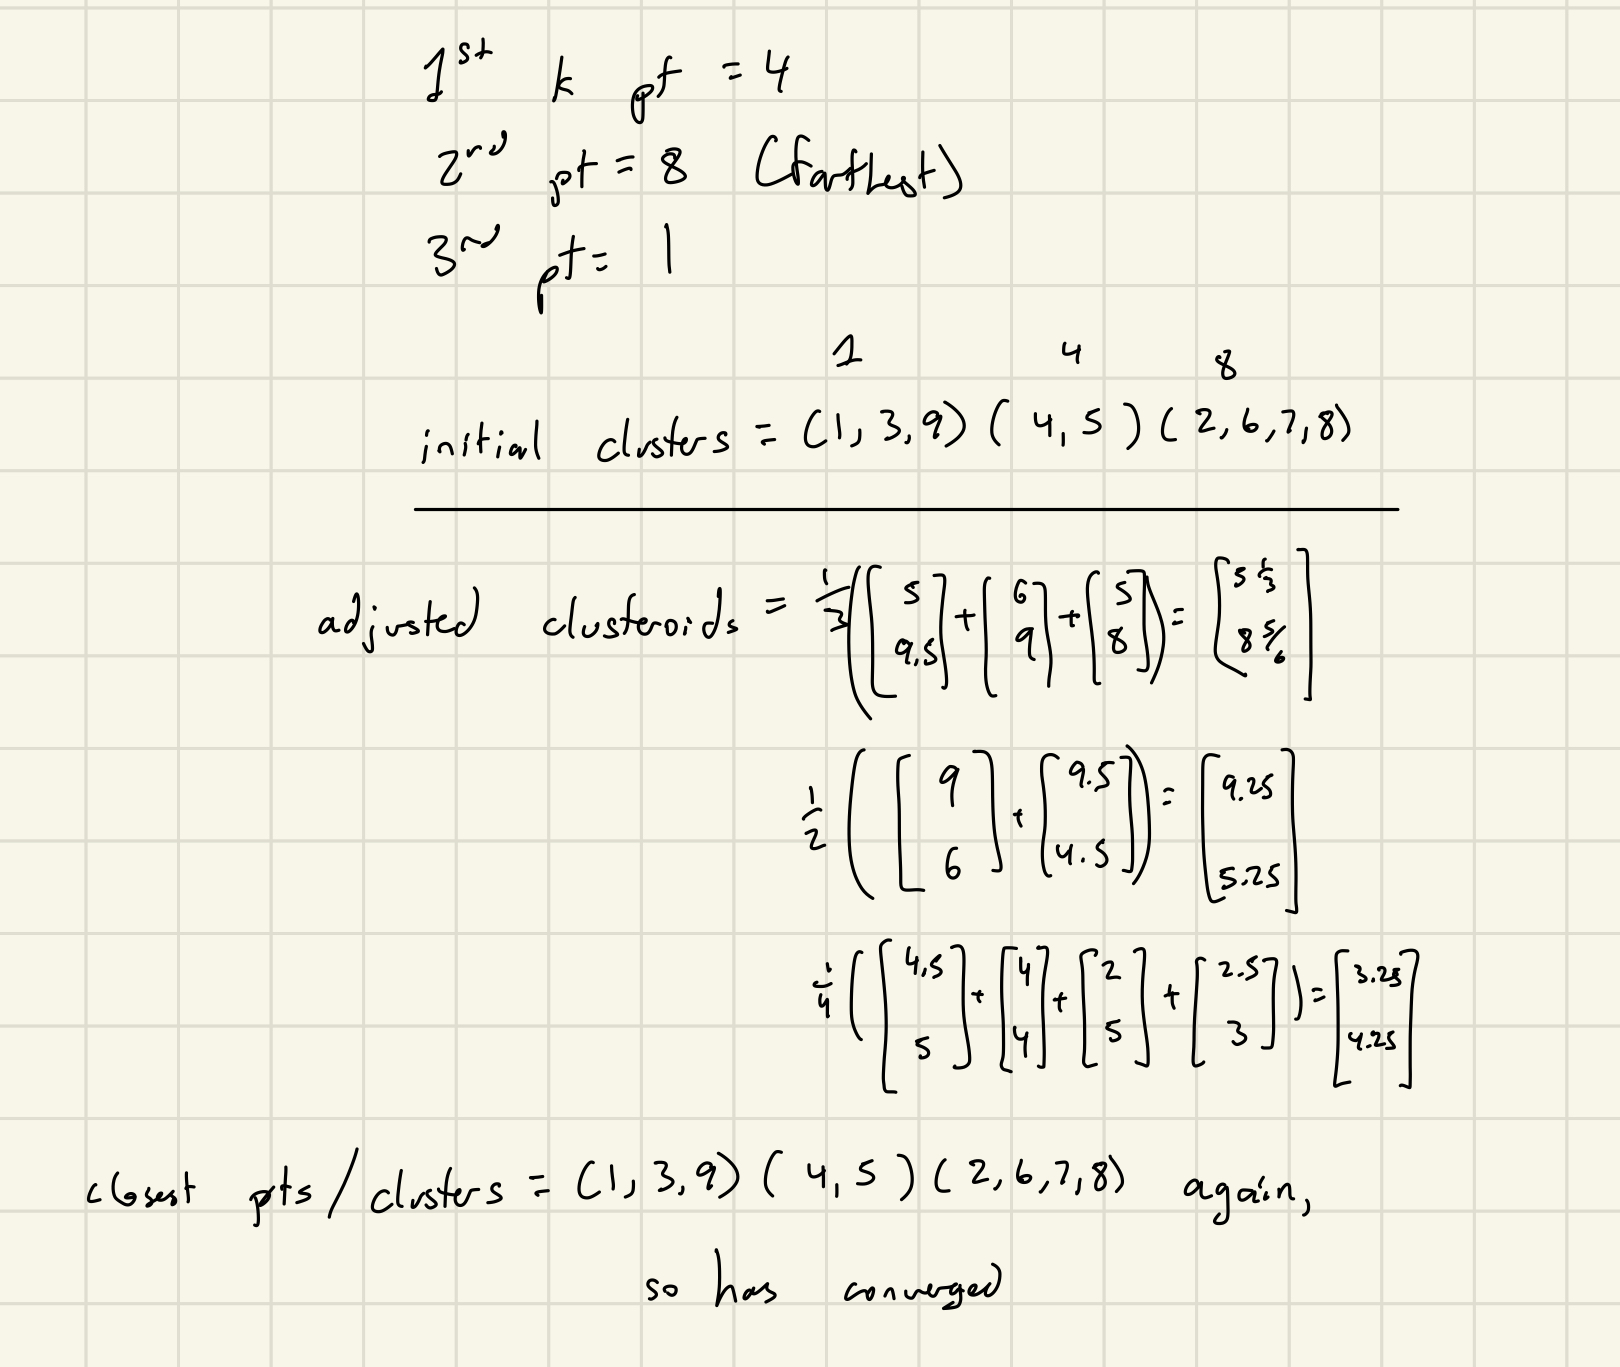 1st k pt = 4
2nd pt = 8 (farthest)
3rd pt = 1
1 4 8
initial clusters = (1, 3, 9) ( 4, 5 ) ( 2, 6, 7, 8)
adjusted clusteroids = 1/3 ([5 9.5] + [6 9] + [5 8]) = [5 1/3 8 5/6]
1/2 ([9 6] + [9.5 4.5]) = [9.25 5.25]
1/4 ([4.5 5] + [4 4] + [2 5] + [2.5 3]) = [3.25 4.25]
closest pts / clusters = (1, 3, 9) ( 4, 5 ) ( 2, 6, 7, 8) again,
so has converged